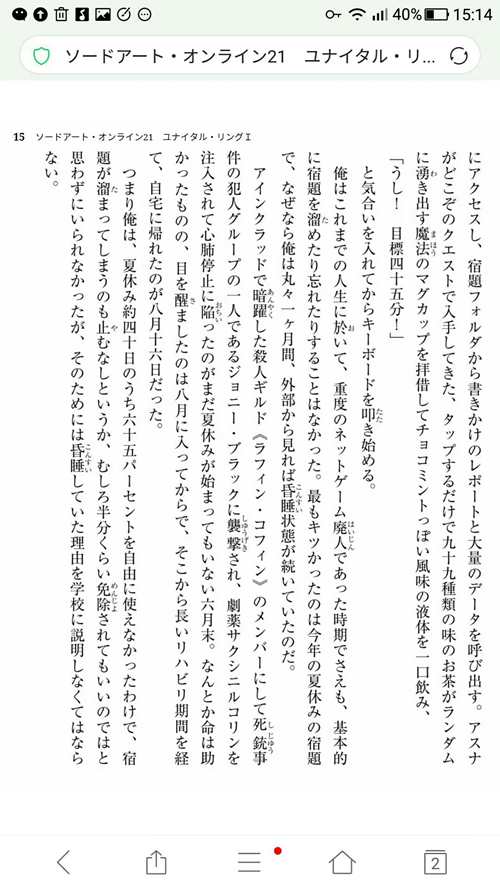 40% 15:14
ソードアート・オンライン21　ユナイタル・リ...
15 ソードアート・オンライン21　ユナイタル・リングⅠ
にアクセスし、宿題フォルダから書きかけのレポートと大量のデータを呼び出す。アスナ
がどこぞのクエストで入手してきた、タップするだけで九十九種類の味のお茶がランダム
に湧き出す魔法のマグカップを拝借してチョコミントっぽい風味の液体を一口飲み、
「うし！　目標四十五分！」
と気合いを入れてからキーボードを叩き始める。
俺はこれまでの人生に於いて、重度のネットゲーム廃人であった時期でさえも、基本的
に宿題を溜めたり忘れたりすることはなかった。最もキツかったのは今年の夏休みの宿題
で、なぜなら俺は丸々一ヶ月間、外部から見れば昏睡状態が続いていたのだ。
アインクラッドで暗躍した殺人ギルド《ラフィン・コフィン》のメンバーにして死銃事
件の犯人グループの一人であるジョニー・ブラックに襲撃され、劇薬サクシニルコリンを
注入されて心肺停止に陥ったのがまだ夏休みが始まってもいない六月末。なんとか命は助
かったものの、目を醒ましたのは八月に入ってからで、そこから長いリハビリ期間を経
て、自宅に帰れたのが八月十六日だった。
つまり俺は、夏休み約四十日のうち六十五パーセントを自由に使えなかったわけで、宿
題が溜まってしまうのも止むなしというか、むしろ半分くらい免除されてもいいのではと
思わずにいられなかったが、そのためには昏睡していた理由を学校に説明しなくてはなら
ない。
2